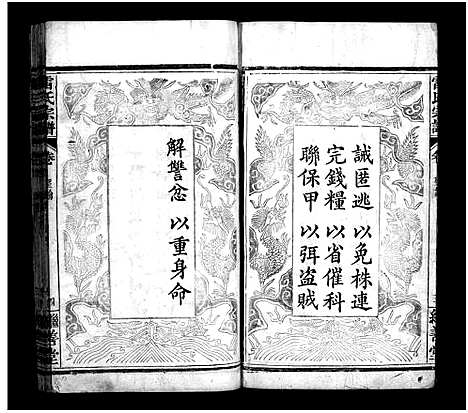 誡匿逃以免株連
完錢糧以省催科
聯保甲以弭盜賊
解讐忿以重身命
雷氏宗譜
卷